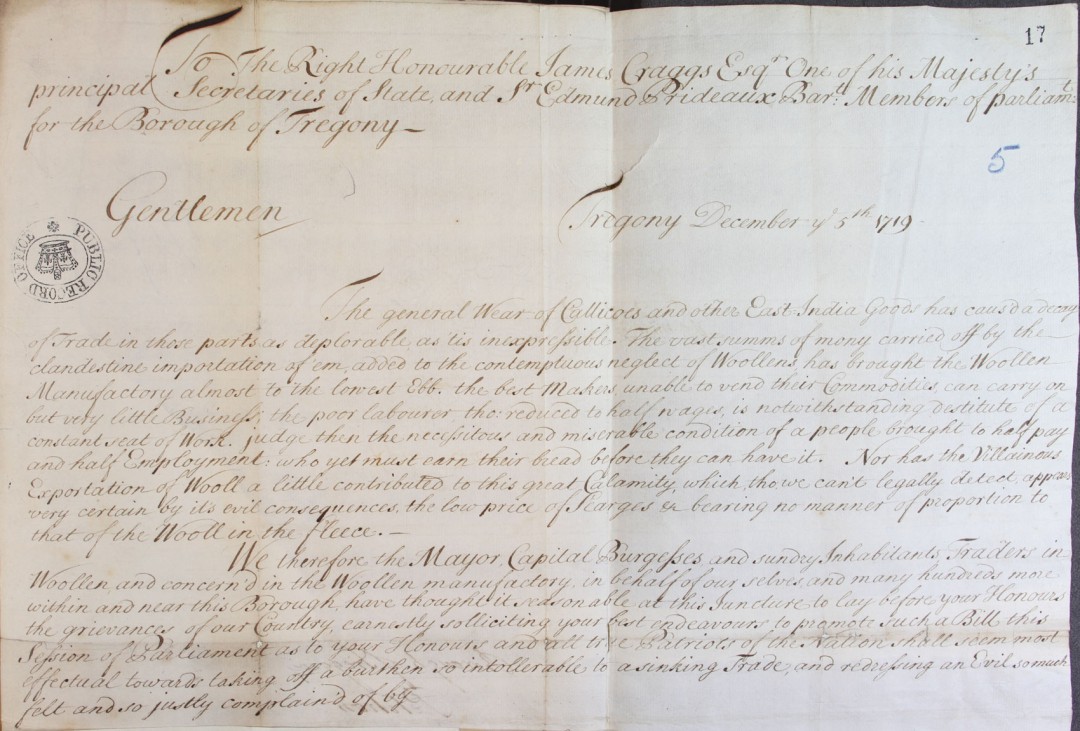 17
To The Right Honourable James Craggs Esqr. One of his Majesty's
principal Secretaries of State, and Sr. Edmund Prideaux Bart. Members of parliamt.
for the Borough of Tregony
5
Gentlemen
Tregony December ye 5th 1719
PUBLIC RECORD OFFICE
The general Wear of Callicoes and other East-India Goods has caus'd a decay
of Trade in these parts as deplorable, as 'tis inexpressible. The vast summs of mony carried off by the
clandestine importation of em, added to the contemptuous neglect of Woollens, has brought the Woollen
Manufactory almost to the lowest Ebb. the best Makers, unable to vend their Commodities can carry on
but very little Business; the poor labourer, tho: reduced to half wages, is notwithstanding destitute of a
constant seat of Work. judge then the necessitous and miserable condition of a people brought to half pay
and half Employment: who yet must earn their bread before they can have it. Nor has the Villainous
Exportation of Wooll a little contributed to this great Calamity, which, tho, we can't legally detect, appears
very certain by it's evil consequences, the low price of Searges &c bearing no manner of proportion to
that of the Wooll in the fleece.
We therefore the Mayor, Capital Burgesses, and sundry Inhabitants, Traders in
Woollen, and concern'd in the Woollen manufactory, in behalf of our selves, and many hundreds more
within and near this Borough, have thought it seasonable at this Juncture to lay before your Honours
the grievances of our Country, earnestly solliciting your best endeavours to promote such a Bill this
Session of Parliament as to your Honours and all true Patriots of the Nation shall seem most
effectual towards taking off a burthen so intollerable to a sinking Trade, and redressing an Evil so much
felt and so justly complain'd of by